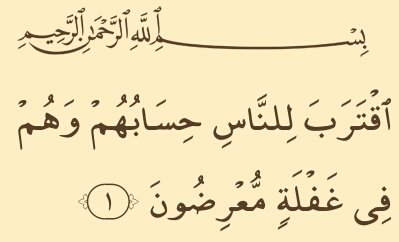 بِسْمِ ٱللَّهِ ٱلرَّحْمَٰنِ ٱلرَّحِيمِ
ٱقْتَرَبَ لِلنَّاسِ حِسَابُهُمْ وَهُمْ
فِى غَفْلَةٍ مُّعْرِضُونَ ١